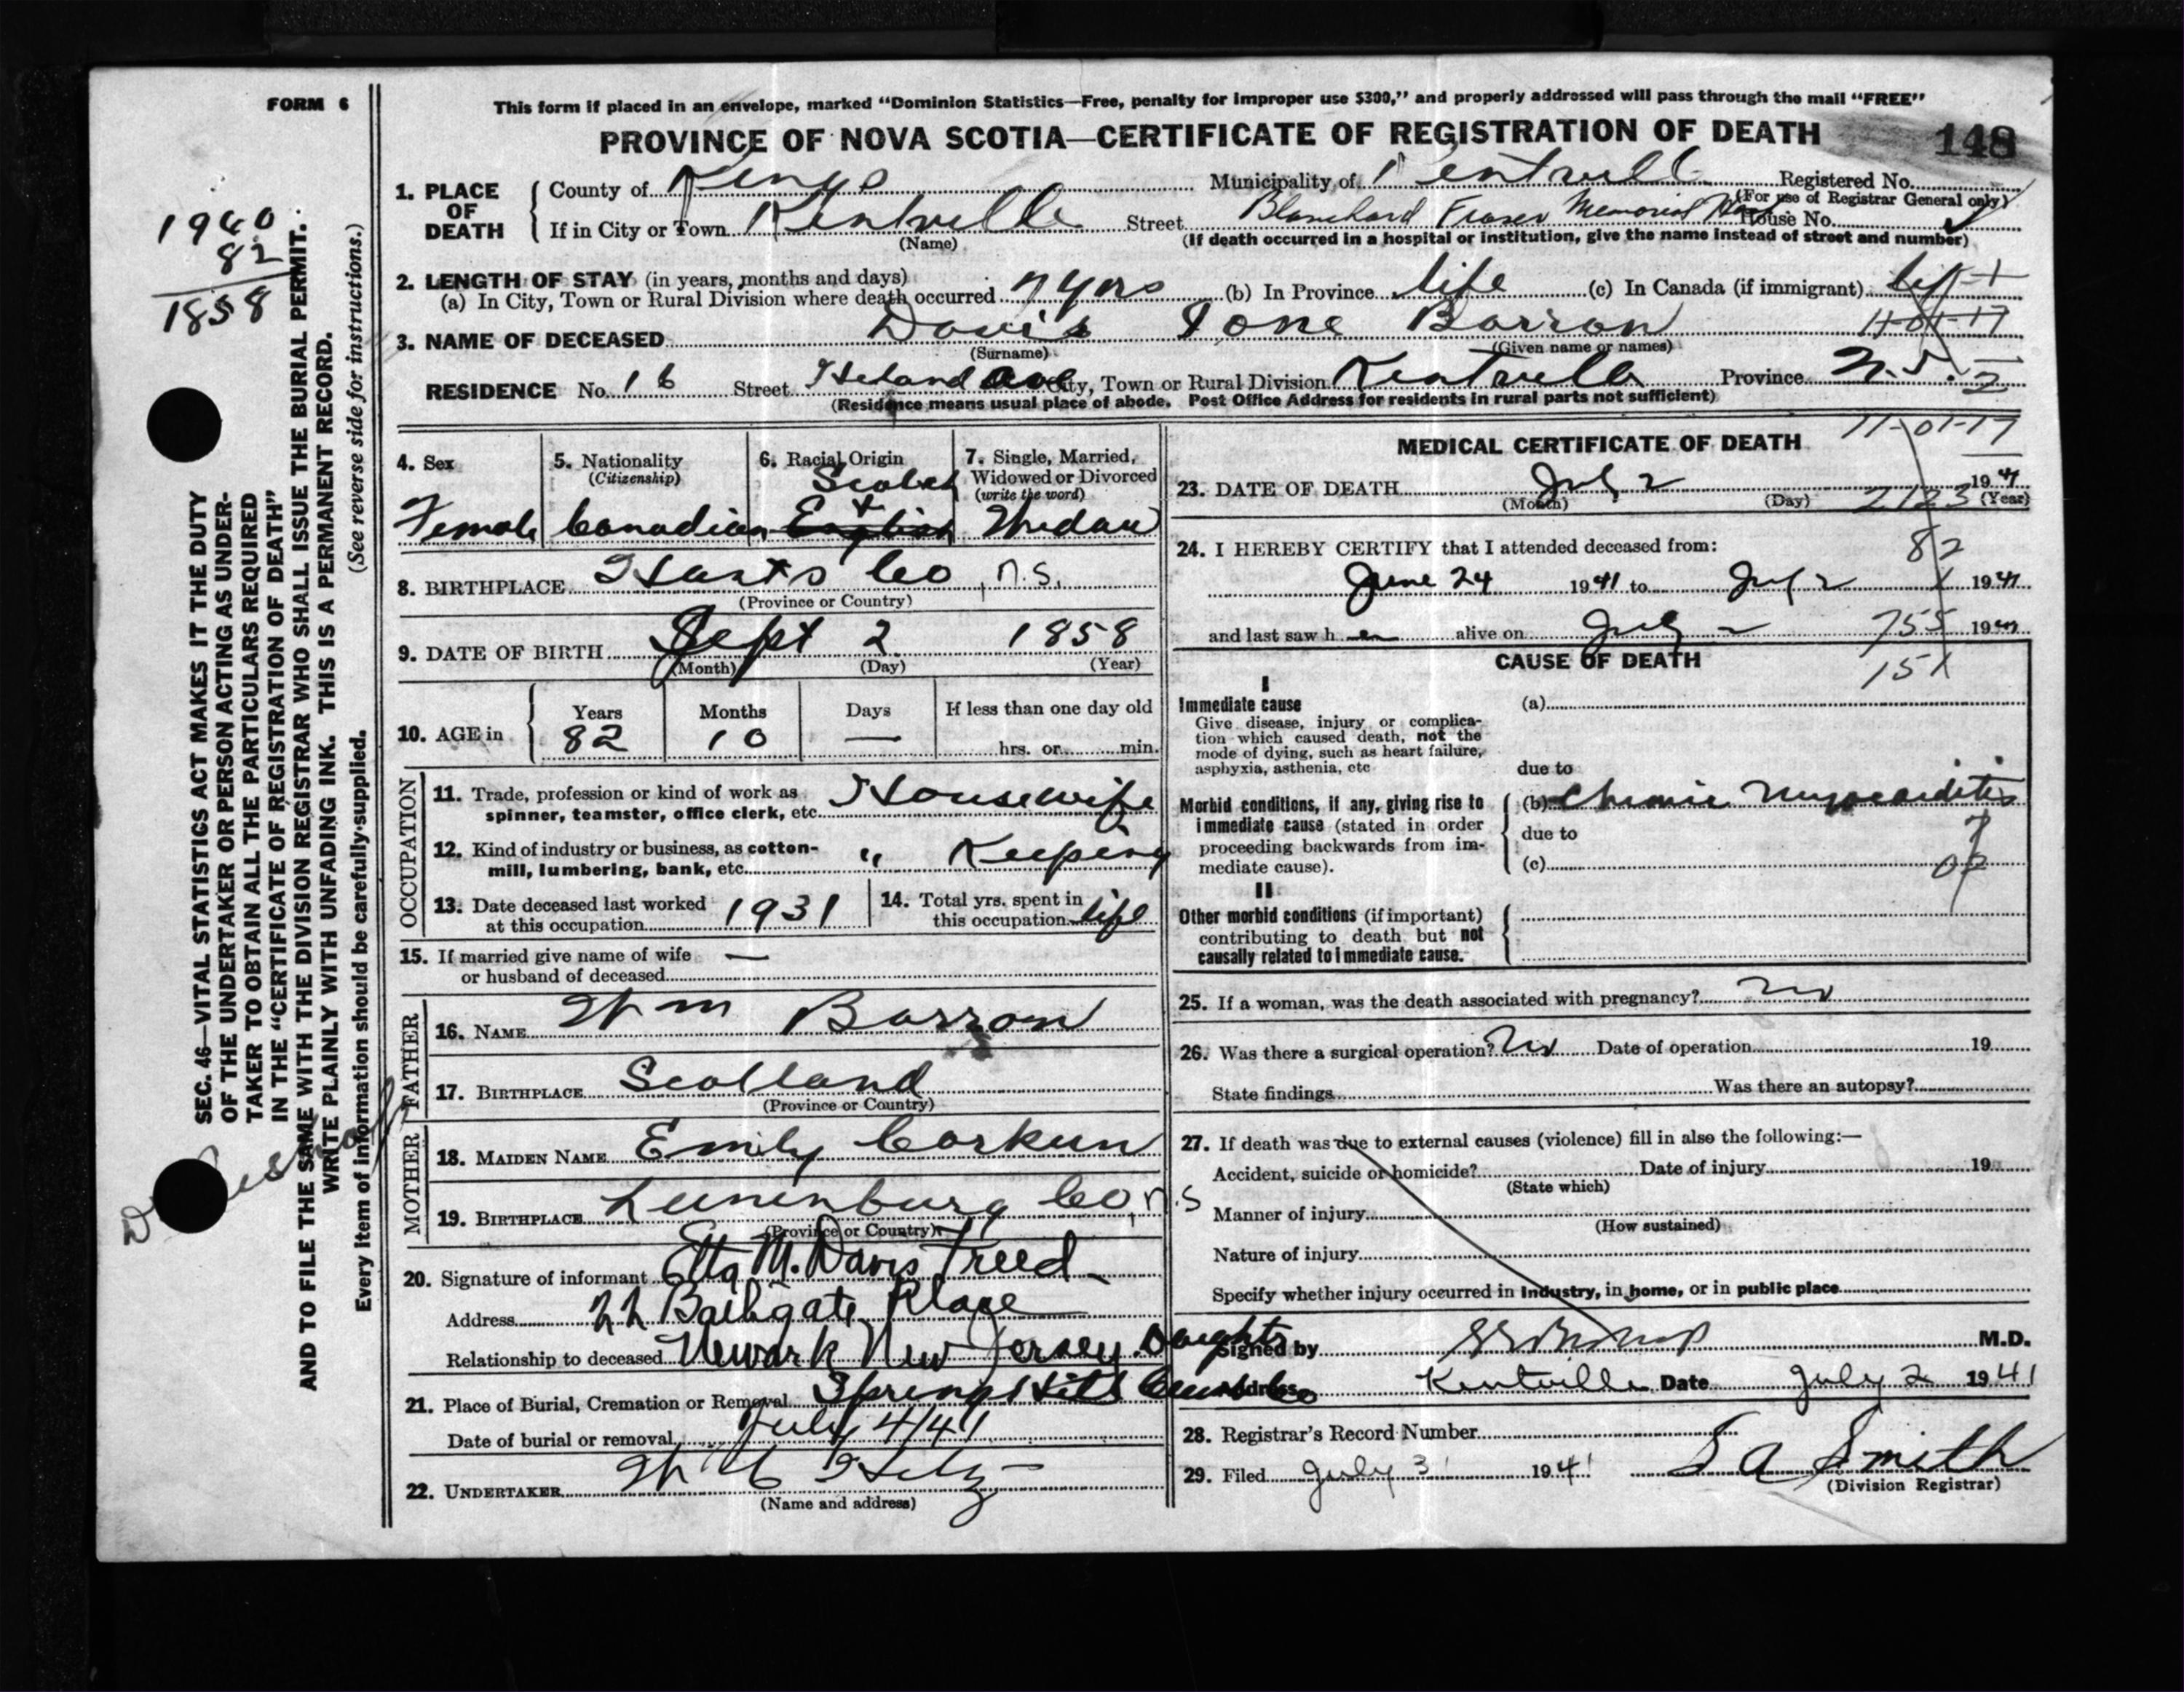 FORM 6
This form if placed in an envelope, marked "Dominion Statistics—Free, penalty for improper use $300," and properly addressed will pass through the mail "FREE"
PROVINCE OF NOVA SCOTIA—CERTIFICATE OF REGISTRATION OF DEATH
148
1940
82
1858
SEC. 46—VITAL STATISTICS ACT MAKES IT THE DUTY
OF THE UNDERTAKER OR PERSON ACTING AS UNDER-
TAKER TO OBTAIN ALL THE PARTICULARS REQUIRED
IN THE "CERTIFICATE OF REGISTRATION OF DEATH"
AND TO FILE THE SAME WITH THE DIVISION REGISTRAR WHO SHALL ISSUE THE BURIAL PERMIT.
WRITE PLAINLY WITH UNFADING INK. THIS IS A PERMANENT RECORD.
Every item of information should be carefully supplied. (See reverse side for instructions.)
1. PLACE OF DEATH
County of Kings Municipality of Kentville Registered No.
(For use of Registrar General only)
If in City or Town Kentville Street Blanchard Fraser Memorial House No.
(Name) (If death occurred in a hospital or institution, give the name instead of street and number)
2. LENGTH OF STAY (in years, months and days)
(a) In City, Town or Rural Division where death occurred 7 yrs (b) In Province life (c) In Canada (if immigrant) life
3. NAME OF DECEASED Davis Ione Barron
11-01-17
(Surname) (Given name or names)
RESIDENCE No. 16 Street Ave City, Town or Rural Division Kentville Province N.S.
(Residence means usual place of abode. Post Office Address for residents in rural parts not sufficient)
4. Sex
Female
5. Nationality
(Citizenship)
Canadian
6. Racial Origin
Scotch
English
7. Single, Married,
Widowed or Divorced
(write the word)
Widow
8. BIRTHPLACE Hants Co, N.S.
(Province or Country)
9. DATE OF BIRTH Sept 2 1858
(Month) (Day) (Year)
10. AGE in
Years Months Days If less than one day old
82 10 — hrs. or min.
OCCUPATION
11. Trade, profession or kind of work as
spinner, teamster, office clerk, etc. Housewife
12. Kind of industry or business, as cotton-
mill, lumbering, bank, etc. " Keeping
13. Date deceased last worked
at this occupation 1931
14. Total yrs. spent in
this occupation life
15. If married give name of wife
or husband of deceased —
FATHER
16. NAME Wm Barron
17. BIRTHPLACE Scotland
(Province or Country)
MOTHER
18. MAIDEN NAME Emily Corkum
19. BIRTHPLACE Lunenburg Co, N.S
(Province or Country)
20. Signature of informant Etta M. Davis Freed
Address 22 Bathgate Place
Relationship to deceased Newark New Jersey. Daughter
21. Place of Burial, Cremation or Removal Springhill
Date of burial or removal July 4/41
22. UNDERTAKER
(Name and address)
MEDICAL CERTIFICATE OF DEATH
11-01-17
23. DATE OF DEATH July 2 1941
(Month) (Day) (Year)
2123
24. I HEREBY CERTIFY that I attended deceased from:
82
June 24 1941 to July 2 1941
and last saw her alive on July 2 1941
755
CAUSE OF DEATH
151
I
Immediate cause (a)
Give disease, injury or complica-
tion which caused death, not the
mode of dying, such as heart failure,
asphyxia, asthenia, etc
due to
Morbid conditions, if any, giving rise to
immediate cause (stated in order
proceeding backwards from im-
mediate cause).
(b) Chronic Myocarditis
due to
(c)
II
Other morbid conditions (if important)
contributing to death but not
causally related to immediate cause.
25. If a woman, was the death associated with pregnancy? no
26. Was there a surgical operation? No Date of operation 19
State findings Was there an autopsy?
27. If death was due to external causes (violence) fill in also the following:—
Accident, suicide or homicide? Date of injury 19
(State which)
Manner of injury
(How sustained)
Nature of injury
Specify whether injury occurred in industry, in home, or in public place
Signed by M.D.
Address Kentville Date July 2 1941
28. Registrar's Record Number
29. Filed July 3 1941 S A Smith
(Division Registrar)